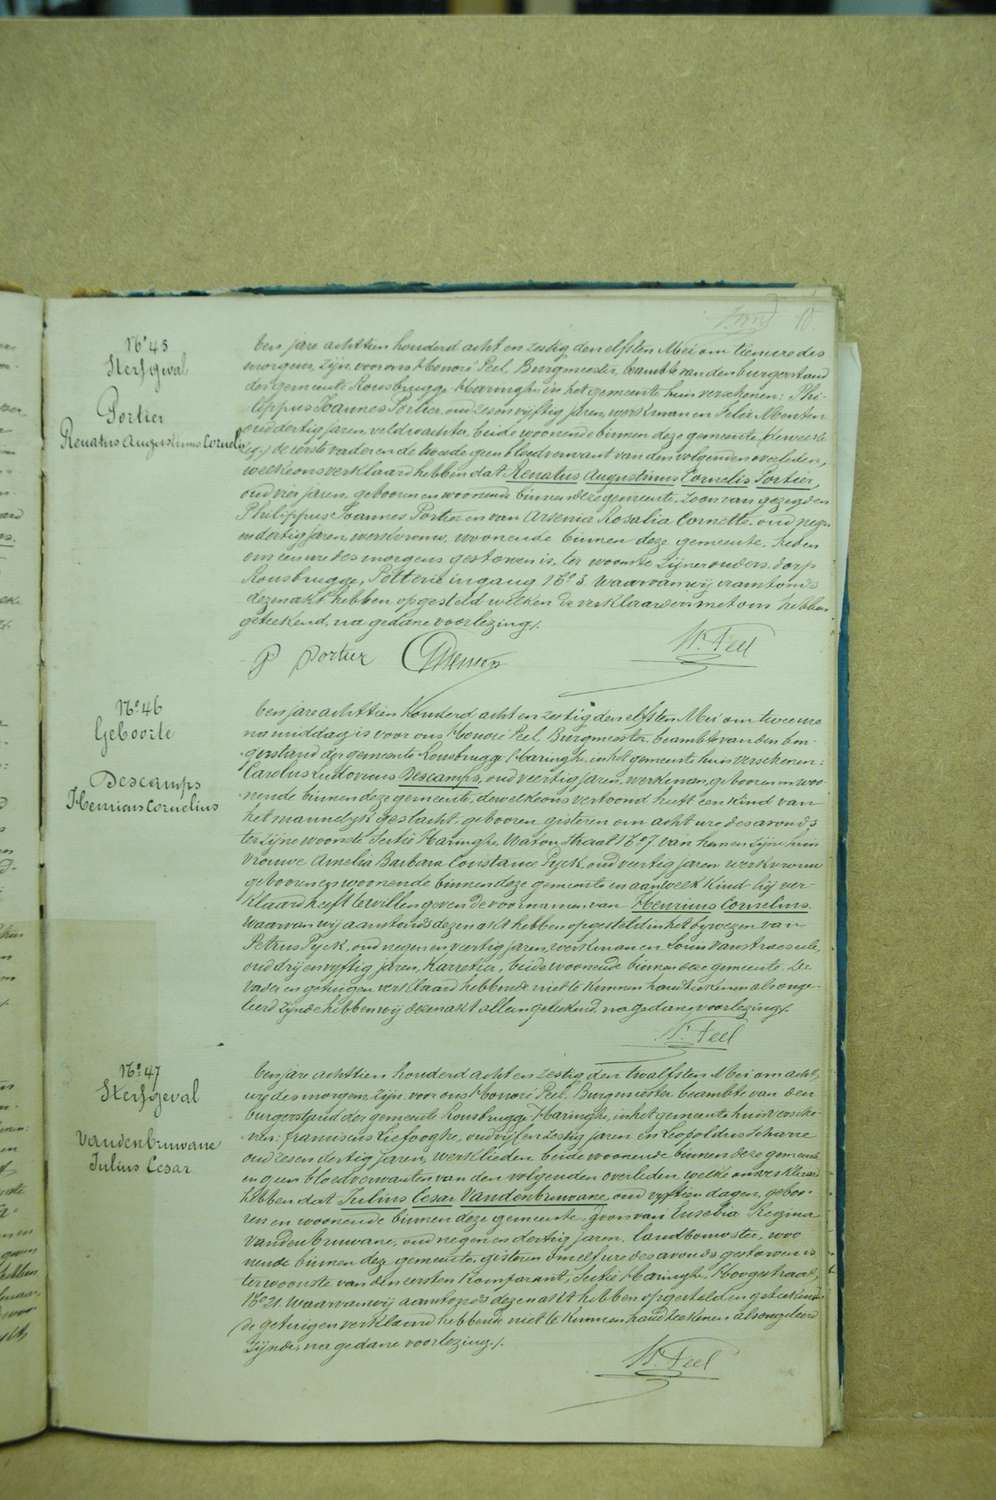 10
N° 45
Sterfgeval
Portier
Renatus Augustinus Cornelis
den jare achttien honderd acht en zestig den elfsten Mei om tien ure des
morgens zijn voor ons Honoré Peel, Burgmeester, beambte van den burgerstand
der gemeente Rousbrugge Haringhe in het gemeente huis verschenen: Phi-
lippus Joannes Portier oud zes en vyftig jaren, werkman en Felix
oud dertig jaren, veldwachter, beide woonende binnen deze gemeente,
de eerste vader en de tweede geen bloedverwant van den volgenden overleden,
welke ons verklaard hebben dat Renatus Augustinus Cornelis Portier,
oud vier jaren, geboren en woonende binnen deze gemeente, zoon van gezegden
Philippus Joannes Portier en van Arsenia Rosalia Cornette, oud negen
en dertig jaren, werkvrouw, woonende binnen deze gemeente, heden
om een ure des morgens gestorven is, ter woonste zijner ouders, dorp
Rousbrugge, Potterie ingang N° 3. Waarvan wij aanstonds
dezen akt hebben opgesteld welken de verklaarders met ons hebben
geteekend, na gedane voorlezing ./.
P Portier H. Peel
N° 46
Geboorte
Descamps
Henricus Cornelius
den jare achttien honderd acht en zestig den elfsten Mei om twee ure
na middag is voor ons Honoré Peel, Burgmeester, beambte van den bur-
gerstand der gemeente Rousbrugge Haringhe, in het gemeente huis verschenen:
Carolus Ludovicus Descamps, oud veertig jaren, werkman, geboren en woo-
nende binnen deze gemeente, dewelke ons vertoond heeft een kind van
het mannelyk geslacht, geboren gisteren om acht ure des avonds
ter zijne woonste Sectie Haringhe, Watou straat N° 7. van hem en zijne huis
vrouwe Amelia Barbara Constance Pyck, oud veertig jaren, werkvrouw
geboren en woonende binnen deze gemeente en aan welk kind hij ver-
klaard heeft te willen geven de voornamen van Henricus Cornelius.
Waarvan wij aanstonds dezen akt hebben opgesteld in het bywezen van
Petrus Pyck, oud negen en veertig jaren, werkman en Louis Vanstraeseele,
oud drij en vyftig jaren, Karretier, beide woonende binnen deze gemeente. De
vader en getuigen verklaard hebbende niet te kunnen handteekenen als onge-
leerd zijnde hebben wij dezen akt alleen geteekend, na gedane voorlezing ./.
H. Peel
N° 47
Sterfgeval
Vandenbruwane
Julius Cesar
den jare achttien honderd acht en zestig den twaalfsten Mei om acht
ure des morgens zijn voor ons Honoré Peel, Burgmeester beambte van den
burgerstand der gemeente Rousbrugge Haringhe, in het gemeente huis versche-
nen: franciscus Liefooghe, oud vijf en zestig jaren en Leopoldus
oud zes en dertig jaren, werklieden, beide woonende binnen deze gemeente
en geen bloedverwanten van den volgenden overleden, welke ons verklaard
hebben dat Julius Cesar Vandenbruwane, oud vyftien dagen, gebo-
ren en woonende binnen deze gemeente, zoon van Eusebia Regina
Vandenbruwane, oud negen en dertig jaren, landbouwster, woo
nende binnen deze gemeente, gisteren om elf ure des avonds gestorven is
ter woonste van den eersten komparant, Sectie Haringhe, Hoogestraat,
N° 21. Waarvan wij aanstonds dezen akt hebben opgesteld en geteekend
de getuigen verklaard hebbende niet te kunnen handteekenen als ongeleerd
zijnde, na gedane voorlezing ./.
H. Peel